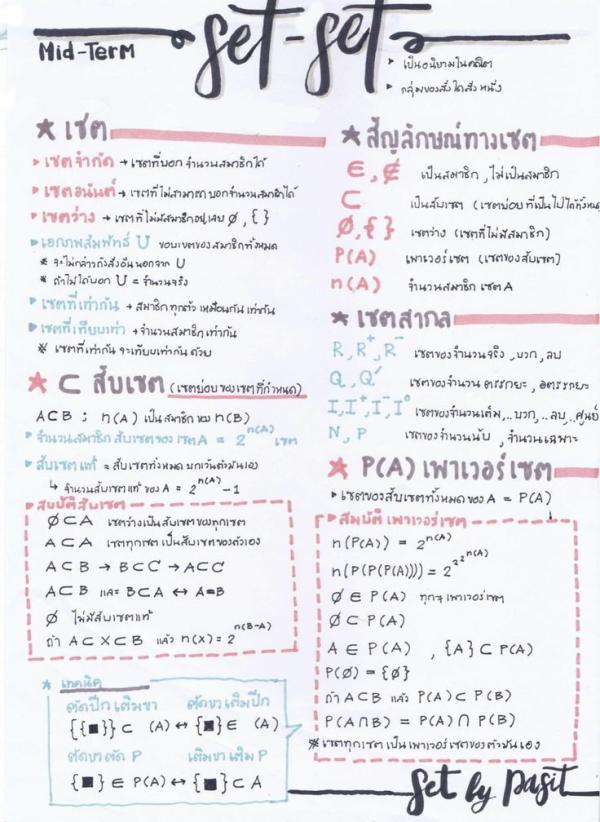 Mid-Term
set-set
▸ เป็นอนิยามในคณิต
▸ กลุ่มของสิ่งใดสิ่งหนึ่ง
★ เซต
▸ เซตจำกัด → เซตที่บอก จำนวนสมาชิกได้
▸ เซตอนันต์ → เซตที่ไม่สามารถบอกจำนวนสมาชิกได้
▸ เซตว่าง → เซตที่ไม่มีสมาชิกอยู่เลย ∅, { }
▸ เอกภพสัมพัทธ์ U ขอบเขตของสมาชิกทั้งหมด
* จะไม่กล่าวถึงสิ่งอื่นนอกจาก U
* ถ้าไม่ได้บอก U = จำนวนจริง
▸ เซตที่เท่ากัน → สมาชิกทุกตัวเหมือนกัน เท่ากัน
▸ เซตที่เทียบเท่า → จำนวนสมาชิกเท่ากัน
* เซตที่เท่ากัน จะเทียบเท่ากัน ด้วย
★ ⊂ สับเซต (เซตย่อยของเซตที่กำหนด)
A⊂B ; n(A) เป็นสมาชิก ของ n(B)
▸ จำนวนสมาชิก สับเซตของ เซต A = 2ⁿ⁽ᴬ⁾ เซต
▸ สับเซตแท้ = สับเซตทั้งหมด ยกเว้นตัวมันเอง
↳ จำนวนสับเซตแท้ ของ A = 2ⁿ⁽ᴬ⁾ -1
▸ สมบัติสับเซต
∅⊂A เซตว่างเป็นสับเซตของทุกเซต
A⊂A เซตทุกเซต เป็นสับเซตของตัวเอง
A⊂B → B⊂C → A⊂C
A⊂B และ B⊂A ↔ A=B
∅ ไม่มีสับเซตแท้
ถ้า A⊂X⊂B แล้ว n(X) = 2^n(B-A)
* เทคนิค
ตัดปีก เติมขา ตัดขา เติมปีก
{{■}} ⊂ (A) ↔ {■} ∈ (A)
ตัดขา ตัด P เติมขา เติม P
{■} ∈ P(A) ↔ {■} ⊂ A
★ สัญลักษณ์ทางเซต
∈, ∉ เป็นสมาชิก , ไม่เป็นสมาชิก
⊂ เป็นสับเซต (เซตย่อย ที่เป็นไปได้ทั้งหมด
∅, { } เซตว่าง (เซตที่ไม่มีสมาชิก)
P(A) เพาเวอร์เซต (เซตของสับเซต)
n(A) จำนวนสมาชิก เซต A
★ เซตสากล
R, R⁺, R⁻ เซตของจำนวนจริง , บวก , ลบ
Q, Q′ เซตของจำนวน ตรรกยะ , อตรรกยะ
I, I⁺, I⁻, I⁰ เซตของจำนวนเต็ม, ..บวก , ..ลบ , ..ศูนย์
N, P เซตของจำนวนนับ , จำนวนเฉพาะ
★ P(A) เพาเวอร์เซต
▸ เซตของสับเซตทั้งหมดของ A = P(A)
▸ สมบัติ เพาเวอร์เซต
n(P(A)) = 2ⁿ⁽ᴬ⁾
n(P(P(P(A)))) = 2^2^2^n(A)
∅ ∈ P(A) ทุกๆ เพาเวอร์เซต
∅ ⊂ P(A)
A ∈ P(A) , {A} ⊂ P(A)
P(∅) = {∅}
ถ้า A⊂B แล้ว P(A) ⊂ P(B)
P(A∩B) = P(A) ∩ P(B)
* เซตทุกเซต เป็น เพาเวอร์เซตของตัวมันเอง
set by pasit